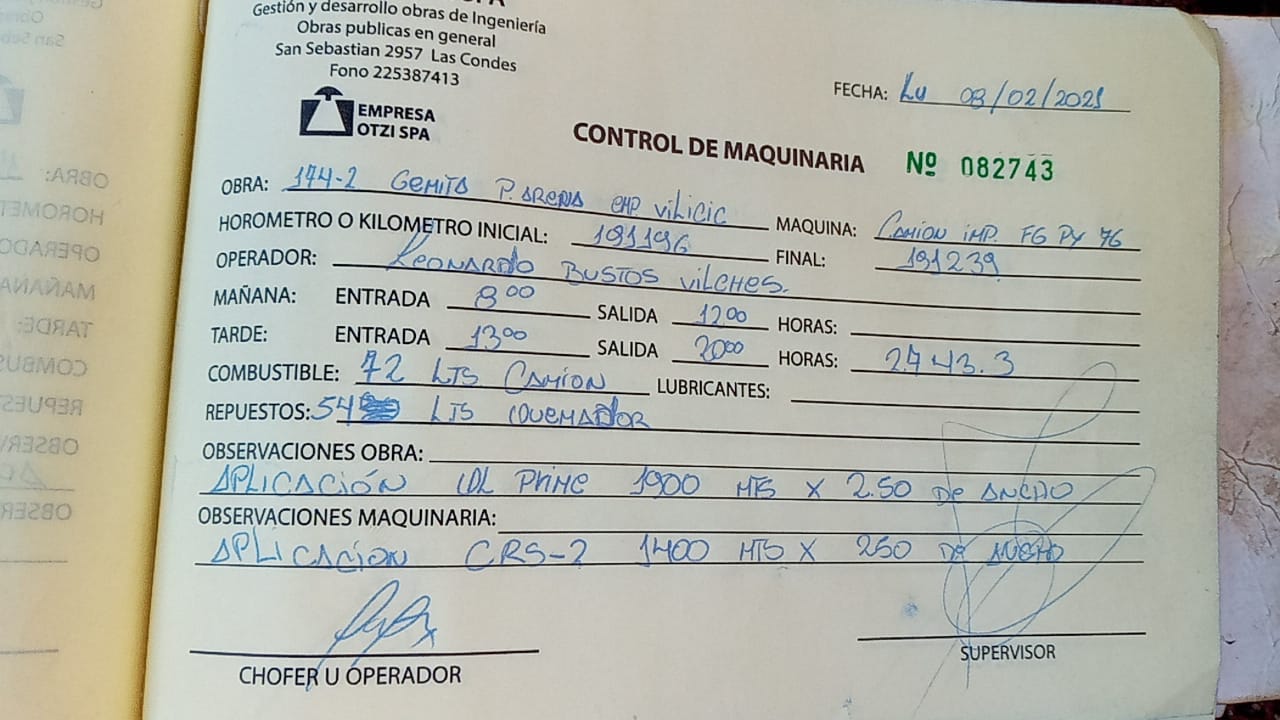 Gestión y desarrollo obras de Ingeniería
Obras publicas en general
San Sebastian 2957 Las Condes
Fono 225387413
EMPRESA
OTZI SPA
FECHA: Lu 08/02/2021
CONTROL DE MAQUINARIA Nº 082743
OBRA: 174-2 Gemita P. ARENA EMP VILICIC MAQUINA: CAMION IMP. FG PY 76
HOROMETRO O KILOMETRO INICIAL: 191196 FINAL: 191239
OPERADOR: Leonardo BUSTOS VILCHES.
MAÑANA: ENTRADA 8:00 SALIDA 12:00 HORAS:
TARDE: ENTRADA 13:00 SALIDA 20:00 HORAS: 2.743.3
COMBUSTIBLE: 72 LTS CAMION LUBRICANTES:
REPUESTOS: 54 LTS QUEMADOR
OBSERVACIONES OBRA:
APLICACIÓN QL PRIME 1900 MTS X 2.50 DE ANCHO
OBSERVACIONES MAQUINARIA:
APLICACION CRS-2 1400 MTS X 250 DE ANCHO
CHOFER U OPERADOR
SUPERVISOR